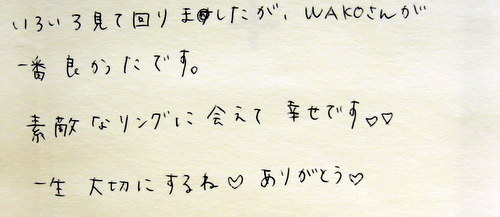 いろいろ見て回りましたが、WAKOさんが
一番良かったです。
素敵なリングに会えて幸せです♡♡
一生大切にするね♡ありがとう♡